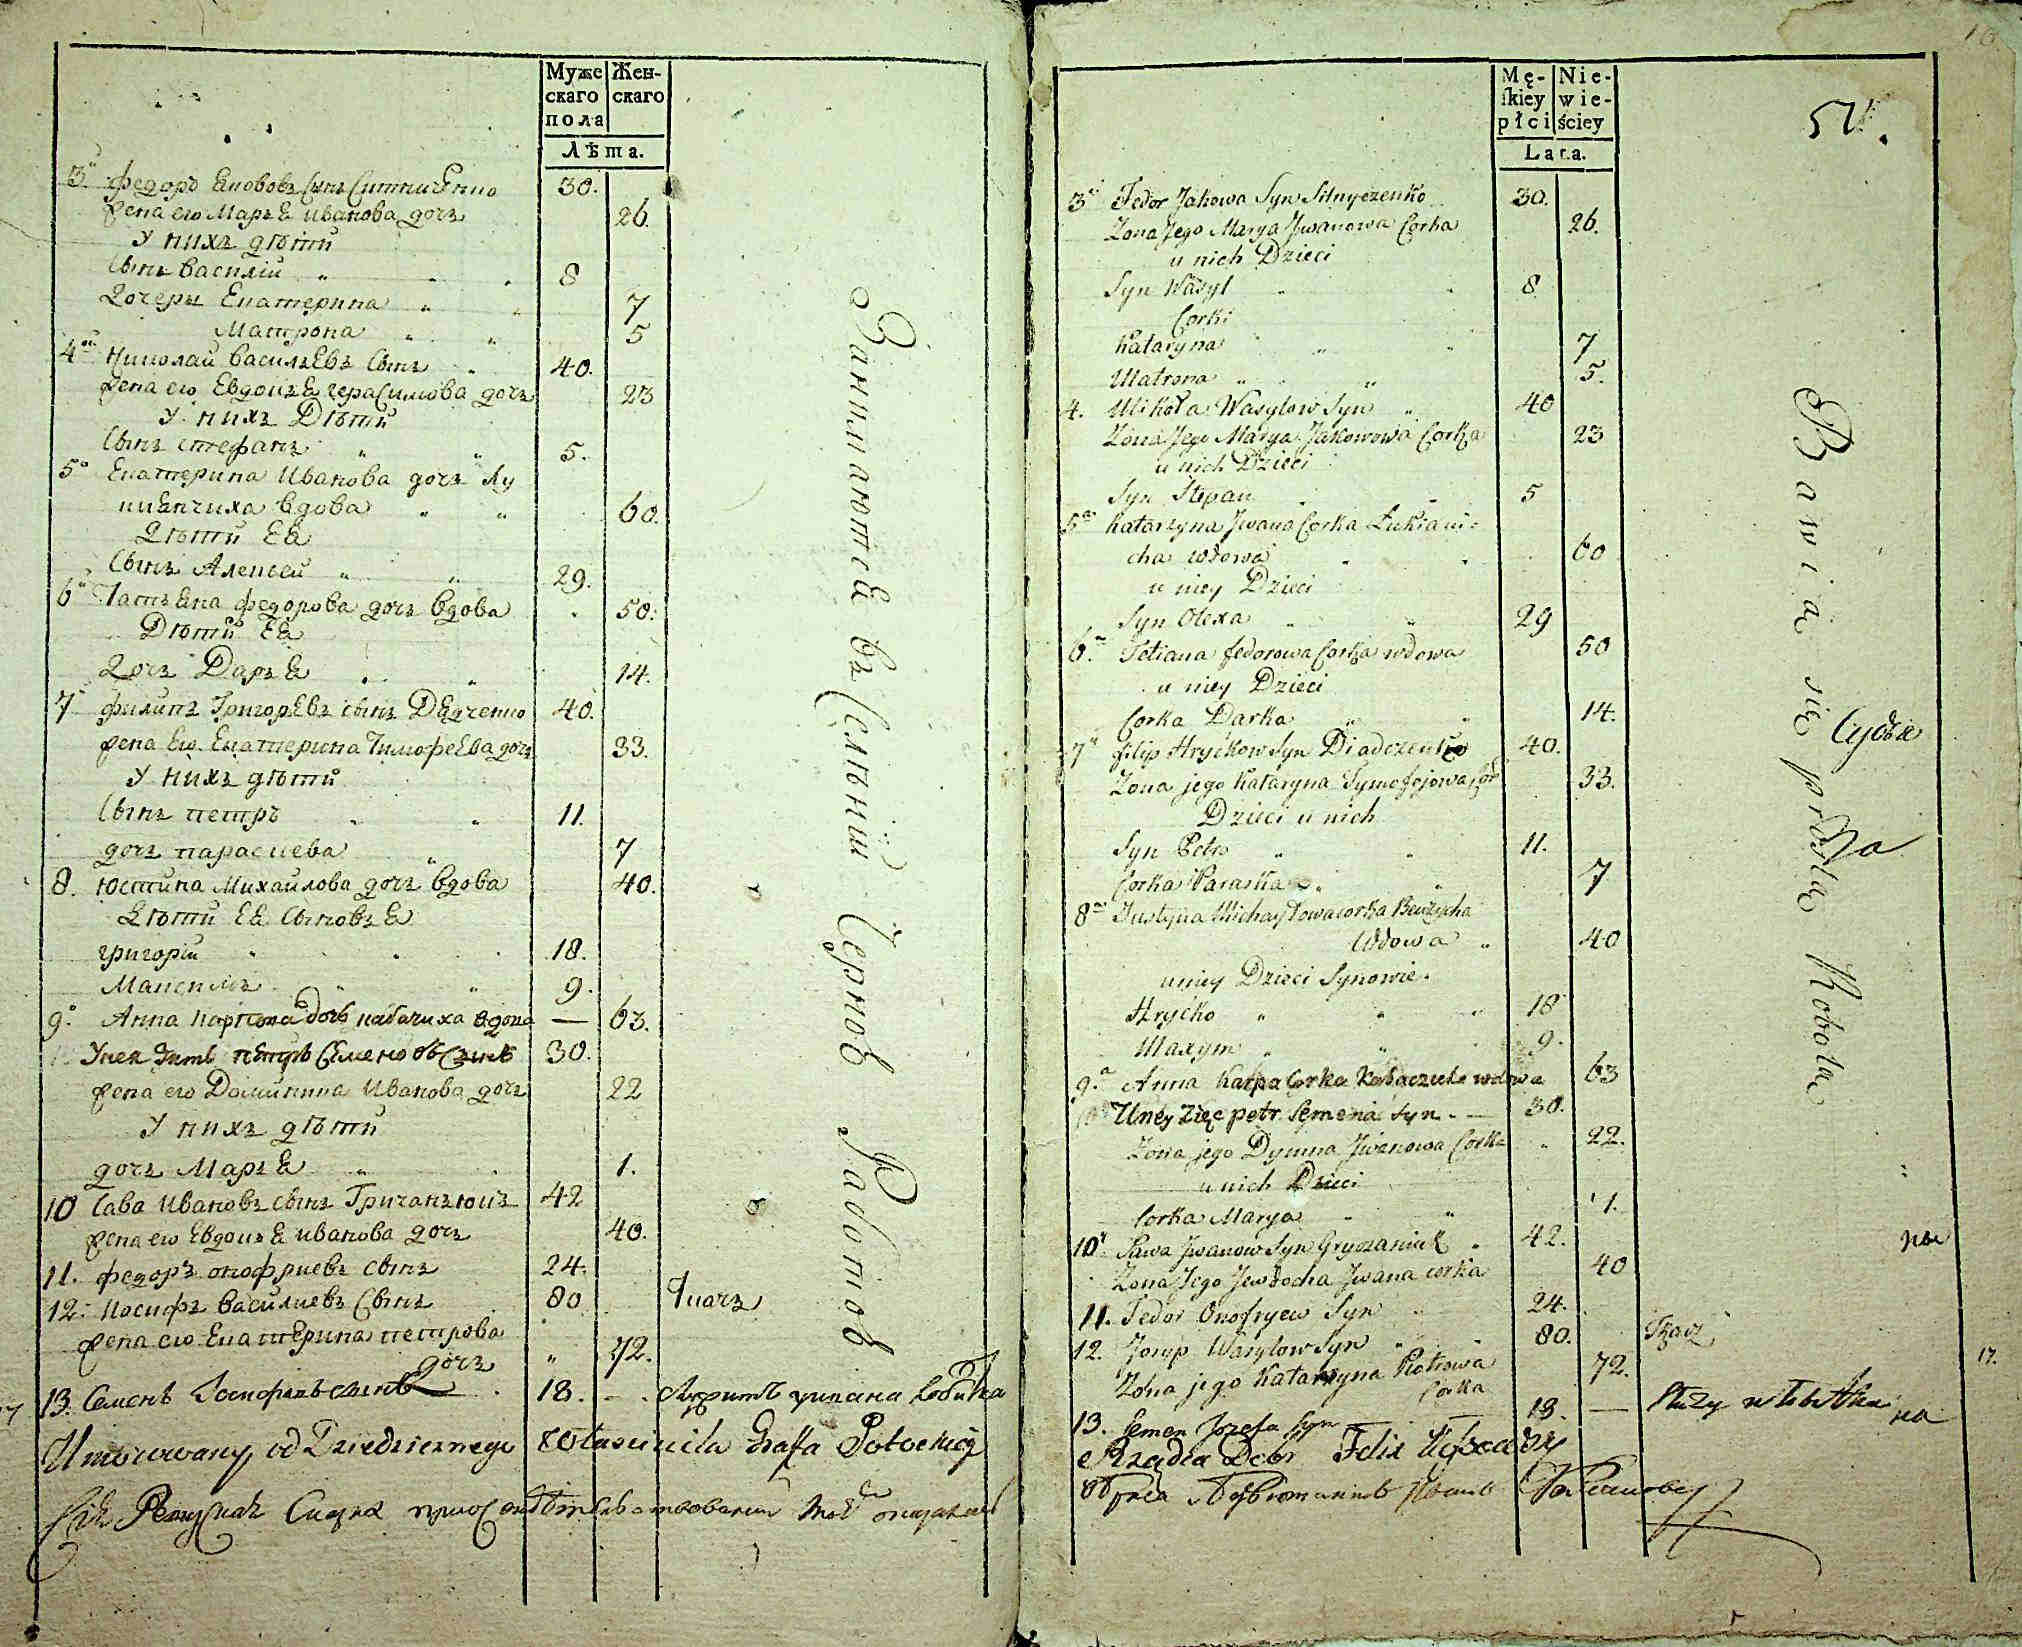 Муже
скаго
пола
Жен-
скаго
Лѣта.
3 федоръ Якововъ Сынъ Ситниченко 30.
жена его Марья иванова дочь 26.
У нихъ дѣти
Сынъ василій 8
Дочеры Екатерина 7
Матрона 5
4 Николай василъевъ Сынъ 40.
жена его Евдокъя герасимова дочь 23
У нихъ Дѣти
Сынъ стефанъ 5.
5 Екатерина Иванова дочь Лу
киянчиха вдова 60.
Дѣти Ея
Сынъ Алексѣй 29.
6 Татьяна федорова дочь вдова 50.
Дѣти Ея
Дочь Дарья 14.
7 филипъ Григорьевъ сынъ Дядченко 40.
жена Его Екатерина Тимофеева дочь 33.
У нихъ дѣти
Сынъ петръ 11.
дочь параскева 7
8. Юстина Михайлова дочь вдова 40.
Дѣти Ея Сыновья
григорій 18.
Максимъ 9.
9. Анна Карпова дочь кабачиха вдова — 63.
У нея зять петръ Семеновъ Сынъ 30.
жена его Домникия Иванова дочь 22
У нихъ дѣти
дочь Марья 1.
10 Сава Ивановъ сынъ Гричанюкъ 42
жена его Евдокья иванова дочь 40.
11. федоръ онофриевъ сынъ 24.
12. Иосифъ василиевъ Сынъ 80 Ткачъ
жена его Екатерина петрова
дочь 72.
13. Семенъ Иосифовъ сынъ 18.
Занимаются въ Селѣнии Чернов Работов
Umocowany od Dziedzicznego Własciciela Graffa Potockiego
Mę-
skiey
płci
Nie-
wie-
ściey
Lata.
16
3 Fedor Jakowa Syn Sitnyczenko 30.
Zona Jego Marya Jwanowa Corka 26.
u nich Dzieci
Syn Wasyl 8
Corki
Kataryna 7
Matrona 5.
4. Mikoła Wasylow Syn 40
Zona Jego Marya Jakowowa Corka 23
u nich Dzieci
Syn Stepan 5
5 Katarzyna Jwana Corka Łukiani-
cha wdowa 60
u niey Dzieci
Syn Olexa 29
6. Tetiana fedorowa Corka wdowa 50
u niey Dzieci
Corka Darka 14.
7 filip Hryćkow Syn Diadczenko 40.
Zona jego Kataryna Tymofejowa Cor 33.
Dzieci u nich
Syn Petro 11.
Corka Paraska 7
8 Justyna Michayłowa corka
Wdowa 40
u niey Dzieci Synowie.
Hryćko 18
Maxym 9.
9. Anna Karpa Corka Kabaczicha wdowa 63
U niey Zięć petr Semena Syn — 30.
Zona jego Dymna Jwanowa Corka 22.
u nich Dzieci
Corka Marya 1.
10 Sawa Jwanow Syn Gryczaniuk 42.
Zona Jego Jewdocha Jwana corka 40
11. Fedor Onofryew Syn 24.
12. Josyp Wasylow Syn 80. Tkacz
Zona jego Katarzyna Piotrowa
Corka 72.
13. Semen Jozefa Syn 18. — Służy
Bawią się prostą Robotą
Судъя
17.
Rządca Dobr Felix